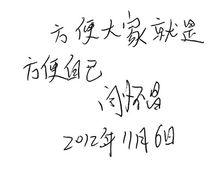 方便大家就是
方便自己
闫怀昌
2012年11月6日